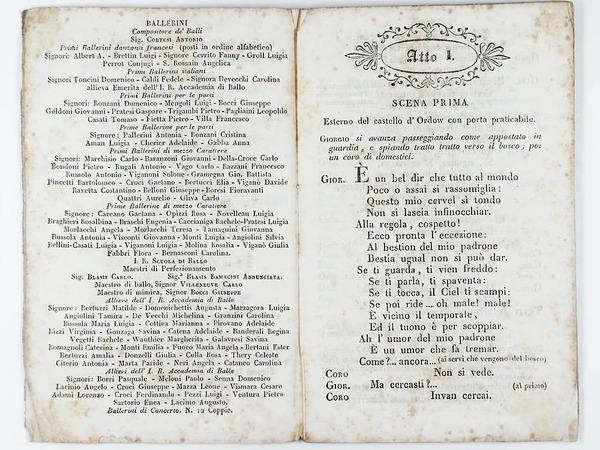 BALLERINI
Compositore de' Balli
Sig. CORTESI ANTONIO
Primi Ballerini danzanti francesi (posti in ordine alfabetico)
Signori: Albert A. - Brettin Luigi - Signore Cerrito Fanny - Groll Luigia
Perrot Conjugi - S. Romain Angelica
Primi Ballerini italiani
Signori Toncini Domenico - Caldi Fedele - Signora Devecchi Carolina
allieva Emerita dell' I. R. Accademia di Ballo
Primi Ballerini per le parti
Signori: Ronzani Domenico - Mengoli Luigi - Bocci Giuseppe
Goldoni Giovanni - Pratesi Gaspare - Trigambi Pietro - Pagliaini Leopoldo
Casati Tomaso - Fietta Pietro - Villa Francesco
Prime Ballerine per le parti
Signore: Pallerini Antonia - Ronzani Cristina
Aman Luigia - Cherier Adelaide - Gabba Anna
Primi Ballerini di mezzo Carattere
Signori: Marchisio Carlo - Baranzoni Giovanni - Della-Croce Carlo
Bondoni Pietro - Rugali Antonio - Vago Carlo - Razzani Francesco
Rumolo Antonio - Viganoni Solone - Gramegna Gio. Battista
Pincetti Bartolomeo - Croci Gaetano - Bertucci Elia - Viganò Davide
Ravetta Costantino - Belloni Giuseppe - Boresi Fioravanti
Quattri Aurelio - Oliva Carlo
Prime Ballerine di mezzo Carattere
Signore: Carcano Gaetana - Opizzi Rosa - Novelleau Luigia
Braghieri Rosalbina - Braschi Eugenia - Caccianiga Rachele - Pratesi Luigia
Morlacchi Angela - Morlacchi Teresa - Tamagnini Giovanna
Bussola Antonia - Visconti Giovanna - Monti Luigia - Angiolini Silvia
Bellini-Casati Luigia - Viganoni Luigia - Molina Rosalia - Viganò Giulia
Fabbri Flora - Bernasconi Carolina.
I. R. SCUOLA DI BALLO
Maestri di Perfezionamento
Sig. BLASIS CARLO. Sig.ª BLASIS RAMACINI ANNUNCIATA.
Maestro di ballo, Signor VILLENEUVE CARLO
Maestro di mimica, Signor BOCCI GIUSEPPE
Allieve dell' I. R. Accademia di Ballo
Signore: Bertuzzi Matilde - Domenichettis Augusta - Marzagora Luigia
Angiolini Tamira - De Vecchi Michelina - Granzini Carolina
Bussola Maria Luigia - Cottica Marianna - Pirovano Adelaide
Bizzi Virginia - Gonzaga Savina - Catena Adelaide - Banderali Regina
Vegetti Rachele - Wauthier Margherita - Galavresi Savina
Romagnoli Caterina - Monti Emilia - Fuoco Maria Angela - Bertani Ester
Bertuzzi Amalia - Donzelli Giulia - Colla Rosa - Thery Celeste
Citerio Antonia - Marta Paride - Neri Angela - Cataneo Carolina
Allievi dell' I. R. Accademia di Ballo
Signori: Borri Pasquale - Meloni Paolo - Senna Domenico
Lacinio Angelo - Croci Giuseppe - Mazza Leone - Vismara Cesare
Adami Lorenzo - Croci Ferdinando - Pezzi Luigi - Ventura Pietro
Sartorio Enea - Lacinio Augusto.
Ballerini di Concerto. N. 12 Coppie.
Atto I.
SCENA PRIMA
Esterno del castello d' Ordow con porta praticabile.
GIORGIO si avanza passeggiando come appostato in
guardia, e spiando tratto tratto verso il bosco; poi
un coro di domestici.
GIOR. È un bel dir che tutto al mondo
Poco o assai si rassomiglia:
Questo mio cervel sì tondo
Non si lascia infinocchiar.
Alla regola, cospetto!
Ecco pronta l' eccezione:
Al bestion del mio padrone
Bestia ugual non si può dar.
Se ti guarda, ti vien freddo:
Se ti parla, ti spaventa:
Se ti tocca, il Ciel ti scampi:
Se poi ride ... oh male! male!
È vicino il temporale,
Ed il tuono è per scoppiar.
Ah l' umor del mio padrone
È un umor che fa tremar.
Come?... ancora... (ai servi che vengono del bosco)
CORO Non si vede.
GIOR. Ma cercasti?... (al primo)
CORO Invan cercai.